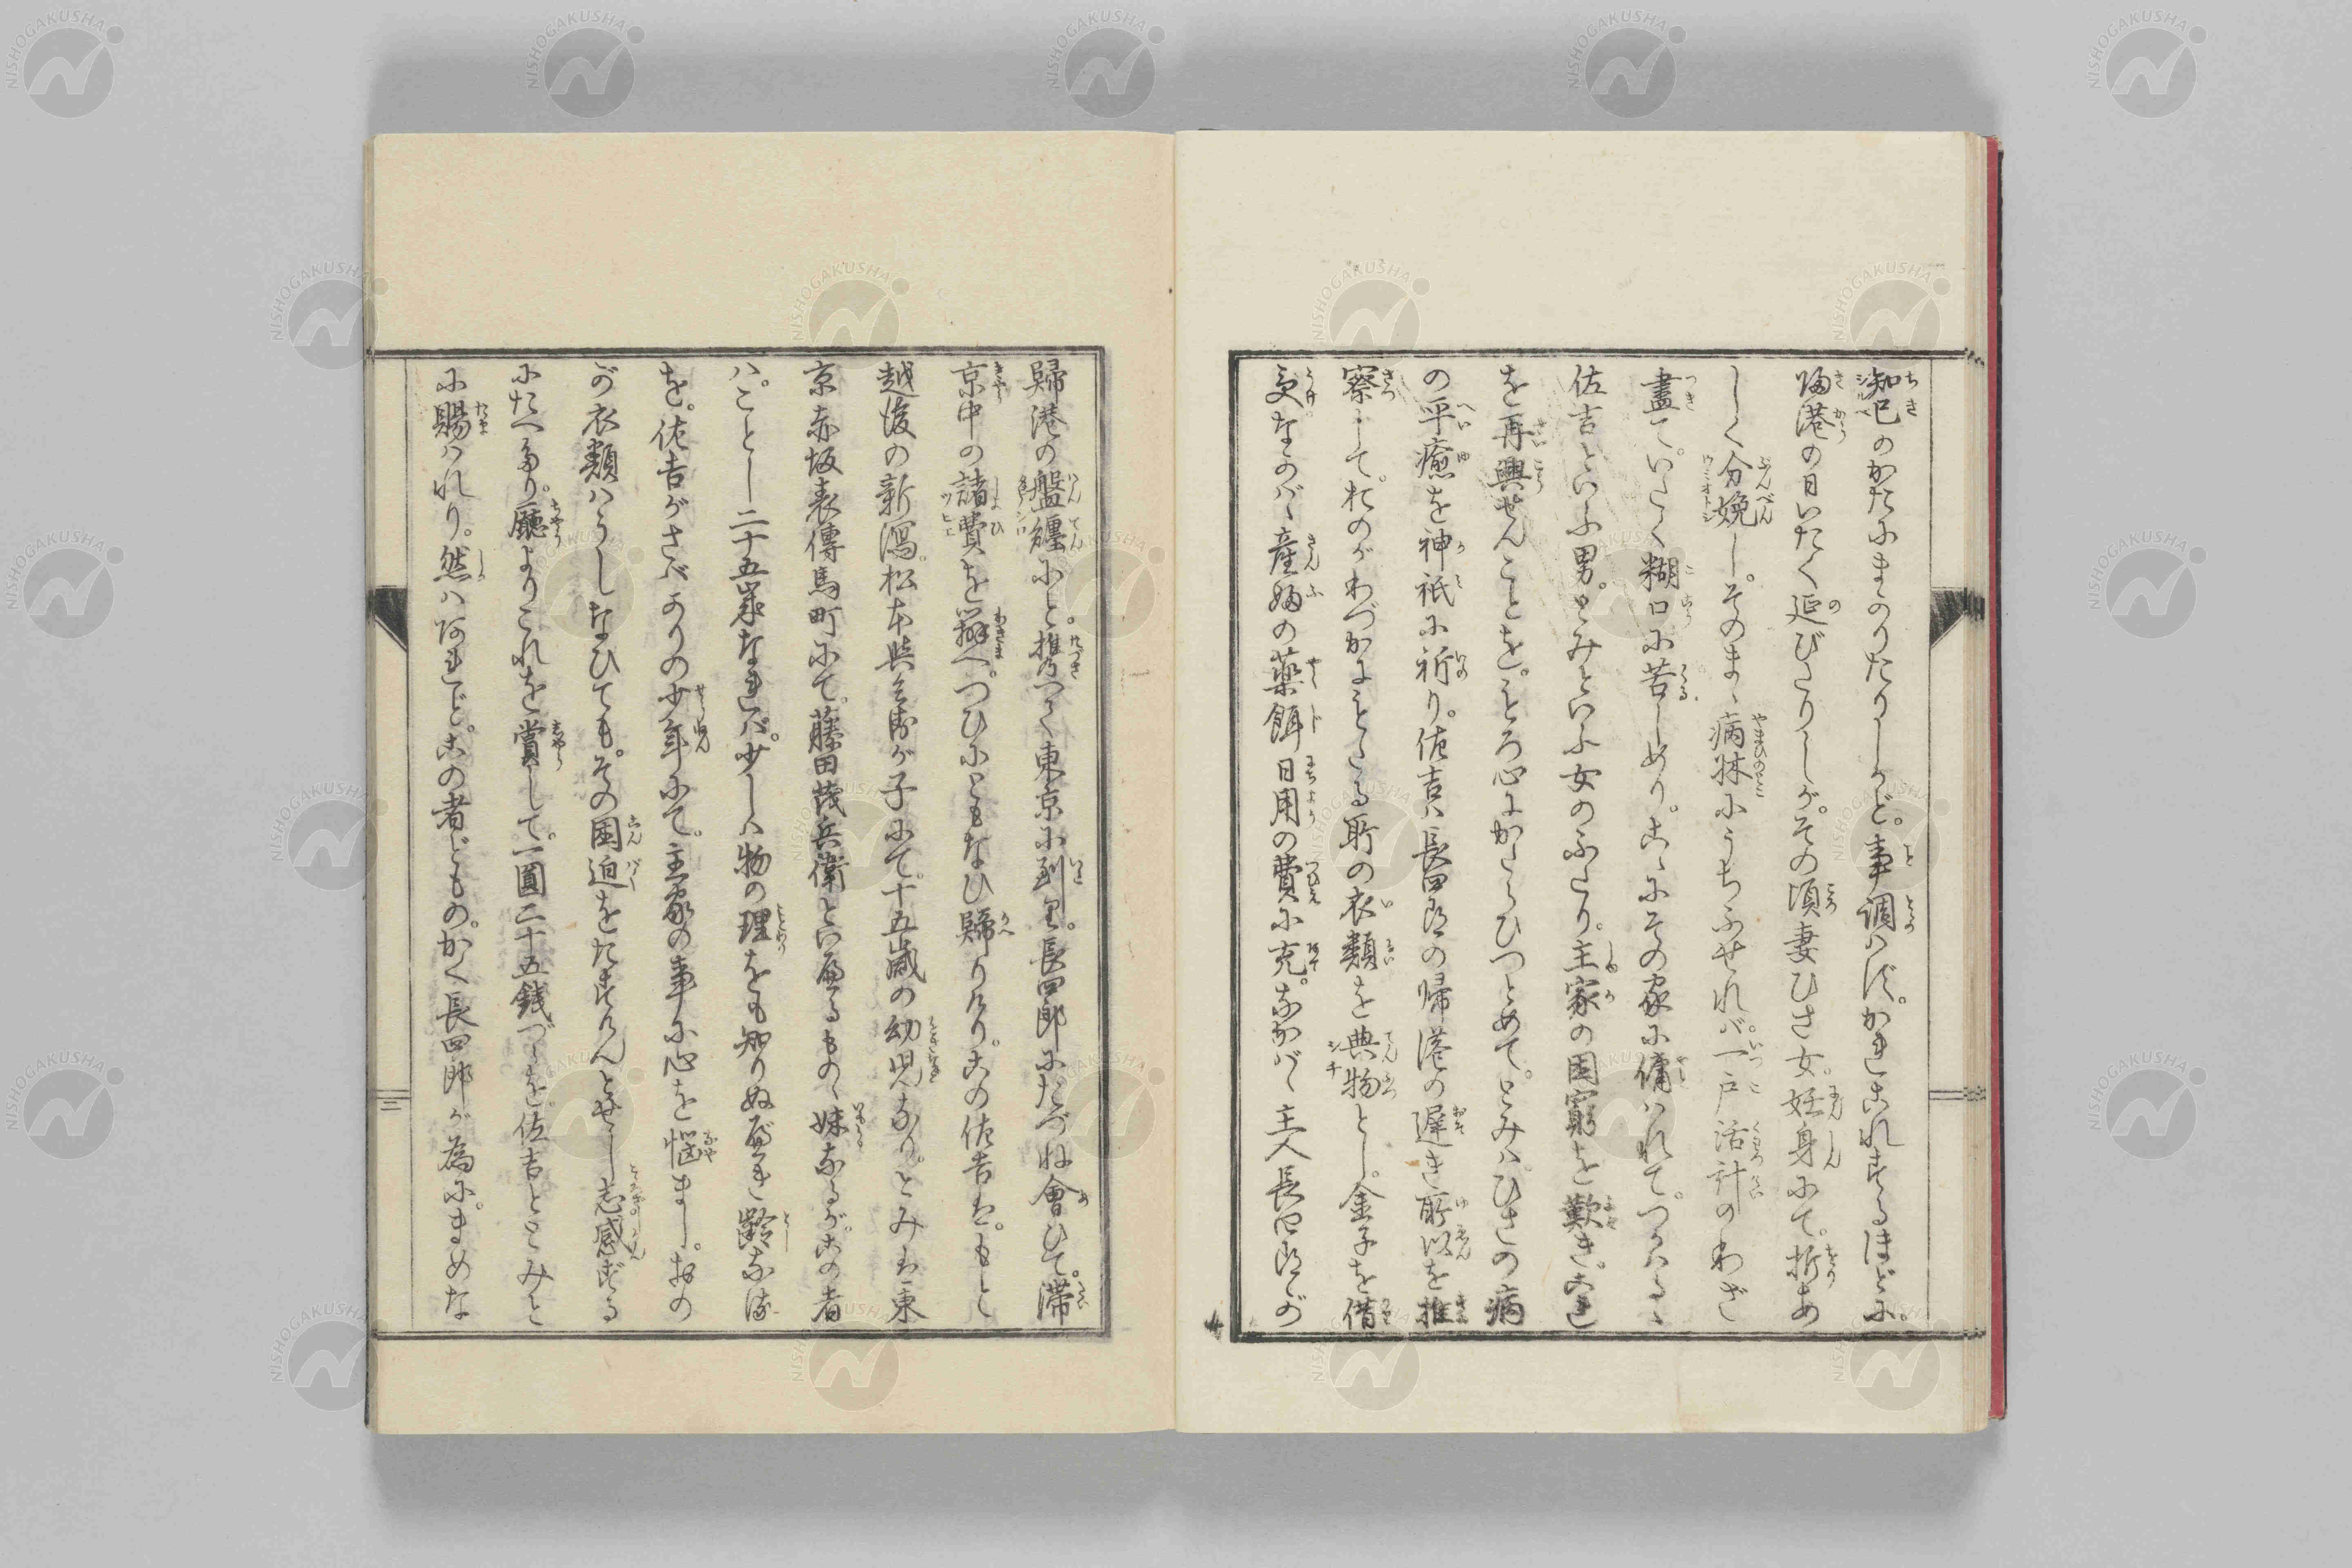 知己のかたにまかりたりしかど。事調はず。かれこれするほどに。
帰港の日いたく延びたりしが。その頃妻ひさ女。妊身にて。折あ
しく分娩し。そのまゝ病牀にうちふせれバ。一戸活計のわざ
盡て。いたく糊口に苦しめり。こゝにその家に傭はれて。つかはるゝ
佐吉といふ男。とみといふ女のふたり。主家の困窮を歎き。これ
を再興せんことを。もろ心にかたらひつとめて。とみハ。ひさの病
の平癒を神祇に祈り。佐吉ハ長四郎の帰港の遅き所以を推
察して。おのがわづかにもたる所の衣類を典物とし。金子を借
受なかバ、産婦の薬餌日用の費に充。なかバ、主人長四郎が
歸港の盤纏にと。携つゝ東京に到り。長四郎にたづね會ひて。滞
京中の諸費を辨へ。つひにともなひ歸りけり。この佐吉は。もと
越後の新瀉。松本與兵衛が子にて。十五歳の幼児なり。とみは東
京赤坂表傳馬町にて。藤田茂兵衛といへるものゝ妹なるが。この者
ハ。ことし二十五歳なれバ。少しハ物の理をも知りぬべき齢なるを
を。佐吉がさばかりの少年にて。主家の事に心を悩まし。おの
が衣類ハうしなひても。その困迫をたすけんとせし志感ずる
にたへたり。廳よりこれを賞して。一圓二十五銭づゝを佐吉ととみと
に賜ハれり。然ハあれど。この者どもの。かく長四郎が為に。まめな
三
NISHOGAKUSHA